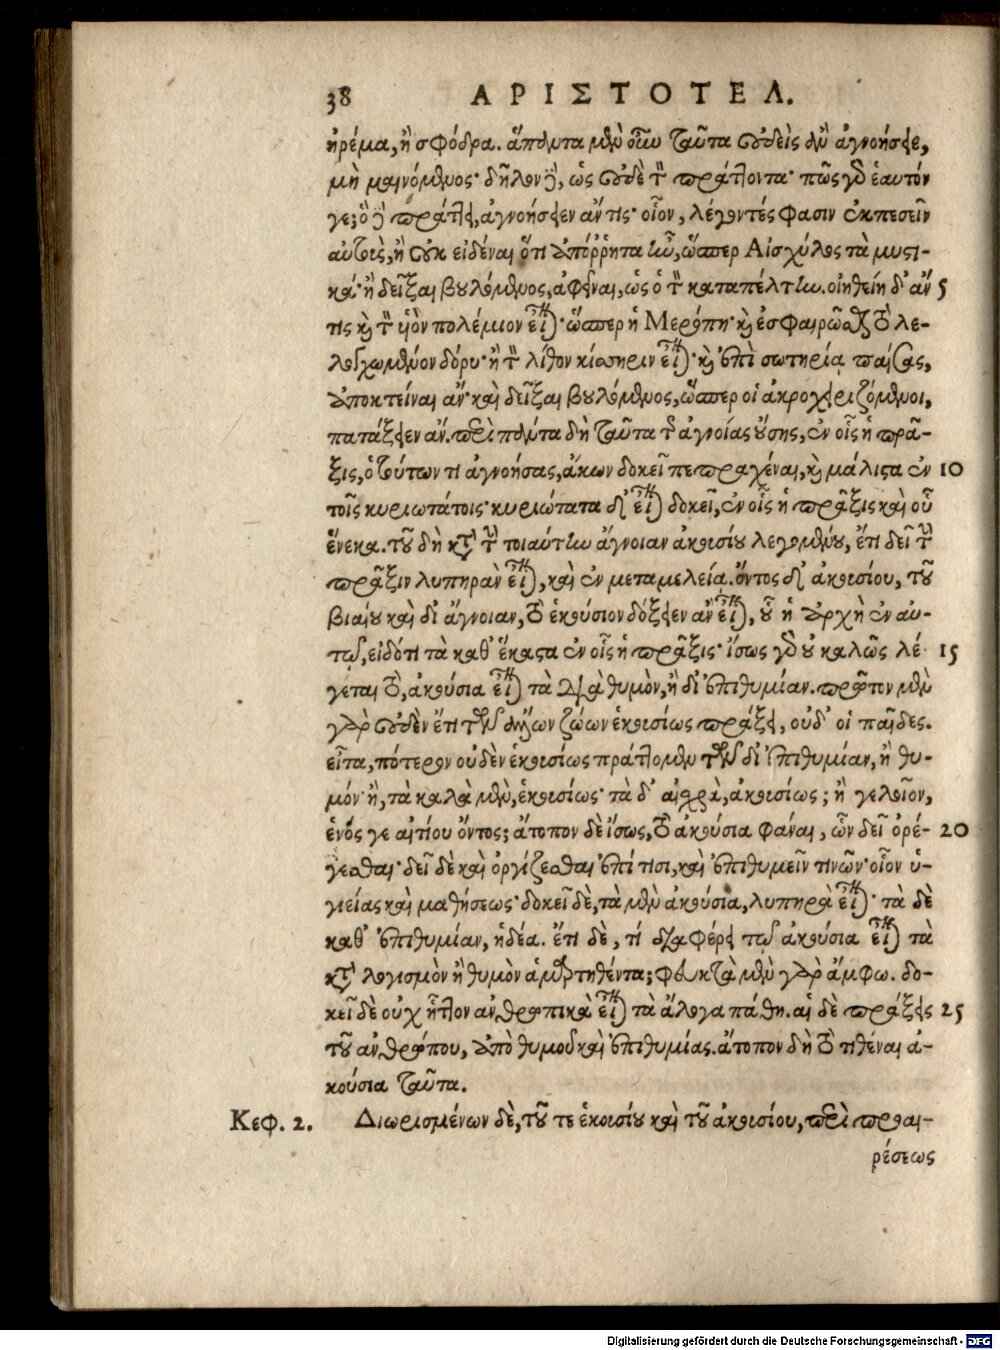 38 ΑΡΙΣΤΟΤΕΛ.
ἠρέμα, ἢ σφόδρα. ἅπαντα μὲν οὖν ταῦτα οὐδεὶς ἂν ἀγνοήσειε,
μὴ μαινόμενος· δῆλον δὲ, ὡς οὐδὲ τὸν πράττοντα· πῶς γὰρ ἑαυτόν
γε; ὃ δὲ πράττει, ἀγνοήσειεν ἄν τις· οἷον, λέγοντές φασιν ἐκπεσεῖν
αὐτοὺς, ἢ οὐκ εἰδέναι ὅτι ἀπόῤῥητα ἦν, ὥσπερ Αἰσχύλος τὰ μυστι-
κά· ἢ δεῖξαι βουλόμενος, ἀφεῖναι, ὡς ὁ τὸν καταπέλτην. οἰηθείη δ' ἄν 5
τις καὶ τὸν υἱὸν πολέμιον εἶναι· ὥσπερ ἡ Μερόπη· καὶ ἐσφαιρῶσθαι τὸ λε-
λογχωμένον δόρυ· ἢ τὸν λίθον κίσσηριν εἶναι· καὶ ἐπὶ σωτηρίᾳ παίσας,
ἀποκτείναι ἄν· καὶ δεῖξαι βουλόμενος, ὥσπερ οἱ ἀκροχειριζόμενοι,
πατάξειεν ἄν. περὶ πάντα δὴ ταῦτα τῆς ἀγνοίας οὔσης, ἐν οἷς ἡ πρᾶ-
ξις, ὁ τούτων τι ἀγνοήσας, ἄκων δοκεῖ πεπραγέναι, καὶ μάλιστα ἐν 10
τοῖς κυριωτάτοις· κυριώτατα δ' εἶναι δοκεῖ, ἐν οἷς ἡ πρᾶξις καὶ οὗ
ἕνεκα. τοῦ δὴ κατὰ τὴν τοιαύτην ἄγνοιαν ἀκουσίου λεγομένου, ἔτι δεῖ τὴν
πρᾶξιν λυπηρὰν εἶναι, καὶ ἐν μεταμελείᾳ. ὄντος δ' ἀκουσίου, τοῦ
βιαίου καὶ δι' ἄγνοιαν, τὸ ἑκούσιον δόξειεν ἂν εἶναι, οὗ ἡ ἀρχὴ ἐν αὐ-
τῷ, εἰδότι τὰ καθ' ἕκαστα ἐν οἷς ἡ πρᾶξις· ἴσως γὰρ οὐ καλῶς λέ- 15
γεται τὸ, ἀκούσια εἶναι τὰ διὰ θυμὸν, ἢ δι' ἐπιθυμίαν. πρῶτον μὲν
γὰρ οὐδὲν ἔτι τῶν ἄλλων ζώων ἑκουσίως πράξει, οὐδ' οἱ παῖδες.
εἶτα, πότερον οὐδὲν ἑκουσίως πράττομεν τῶν δι' ἐπιθυμίαν, ἢ θυ-
μόν· ἢ, τὰ καλὰ μὲν, ἑκουσίως· τὰ δ' αἰσχρὰ, ἀκουσίως; ἢ γελοῖον,
ἑνός γε αἰτίου ὄντος; ἄτοπον δὲ ἴσως, τὸ ἀκούσια φάναι, ὧν δεῖ ὀρέ- 20
γεσθαι· δεῖ δὲ καὶ ὀργίζεσθαι ἐπί τισι, καὶ ἐπιθυμεῖν τινῶν· οἷον ὑ-
γιείας καὶ μαθήσεως· δοκεῖ δὲ, τὰ μὲν ἀκούσια, λυπηρὰ εἶναι· τὰ δὲ
καθ' ἐπιθυμίαν, ἡδέα. ἔτι δὲ, τί διαφέρει τῷ ἀκούσια εἶναι τὰ
κατὰ λογισμὸν ἢ θυμὸν ἁμαρτηθέντα; φευκτὰ μὲν γὰρ ἄμφω. δο-
κεῖ δὲ οὐχ ἧττον ἀνθρωπικὰ εἶναι τὰ ἄλογα πάθη. αἱ δὲ πράξεις 25
τοῦ ἀνθρώπου, ἀπὸ θυμοῦ καὶ ἐπιθυμίας. ἄτοπον δὴ τὸ τιθέναι ἀ-
κούσια ταῦτα.
Κεφ. 2. Διωρισμένων δὲ, τοῦ τε ἑκουσίου καὶ τοῦ ἀκουσίου, περὶ προαι-
ρέσεως
Digitalisierung gefördert durch die Deutsche Forschungsgemeinschaft - DFG